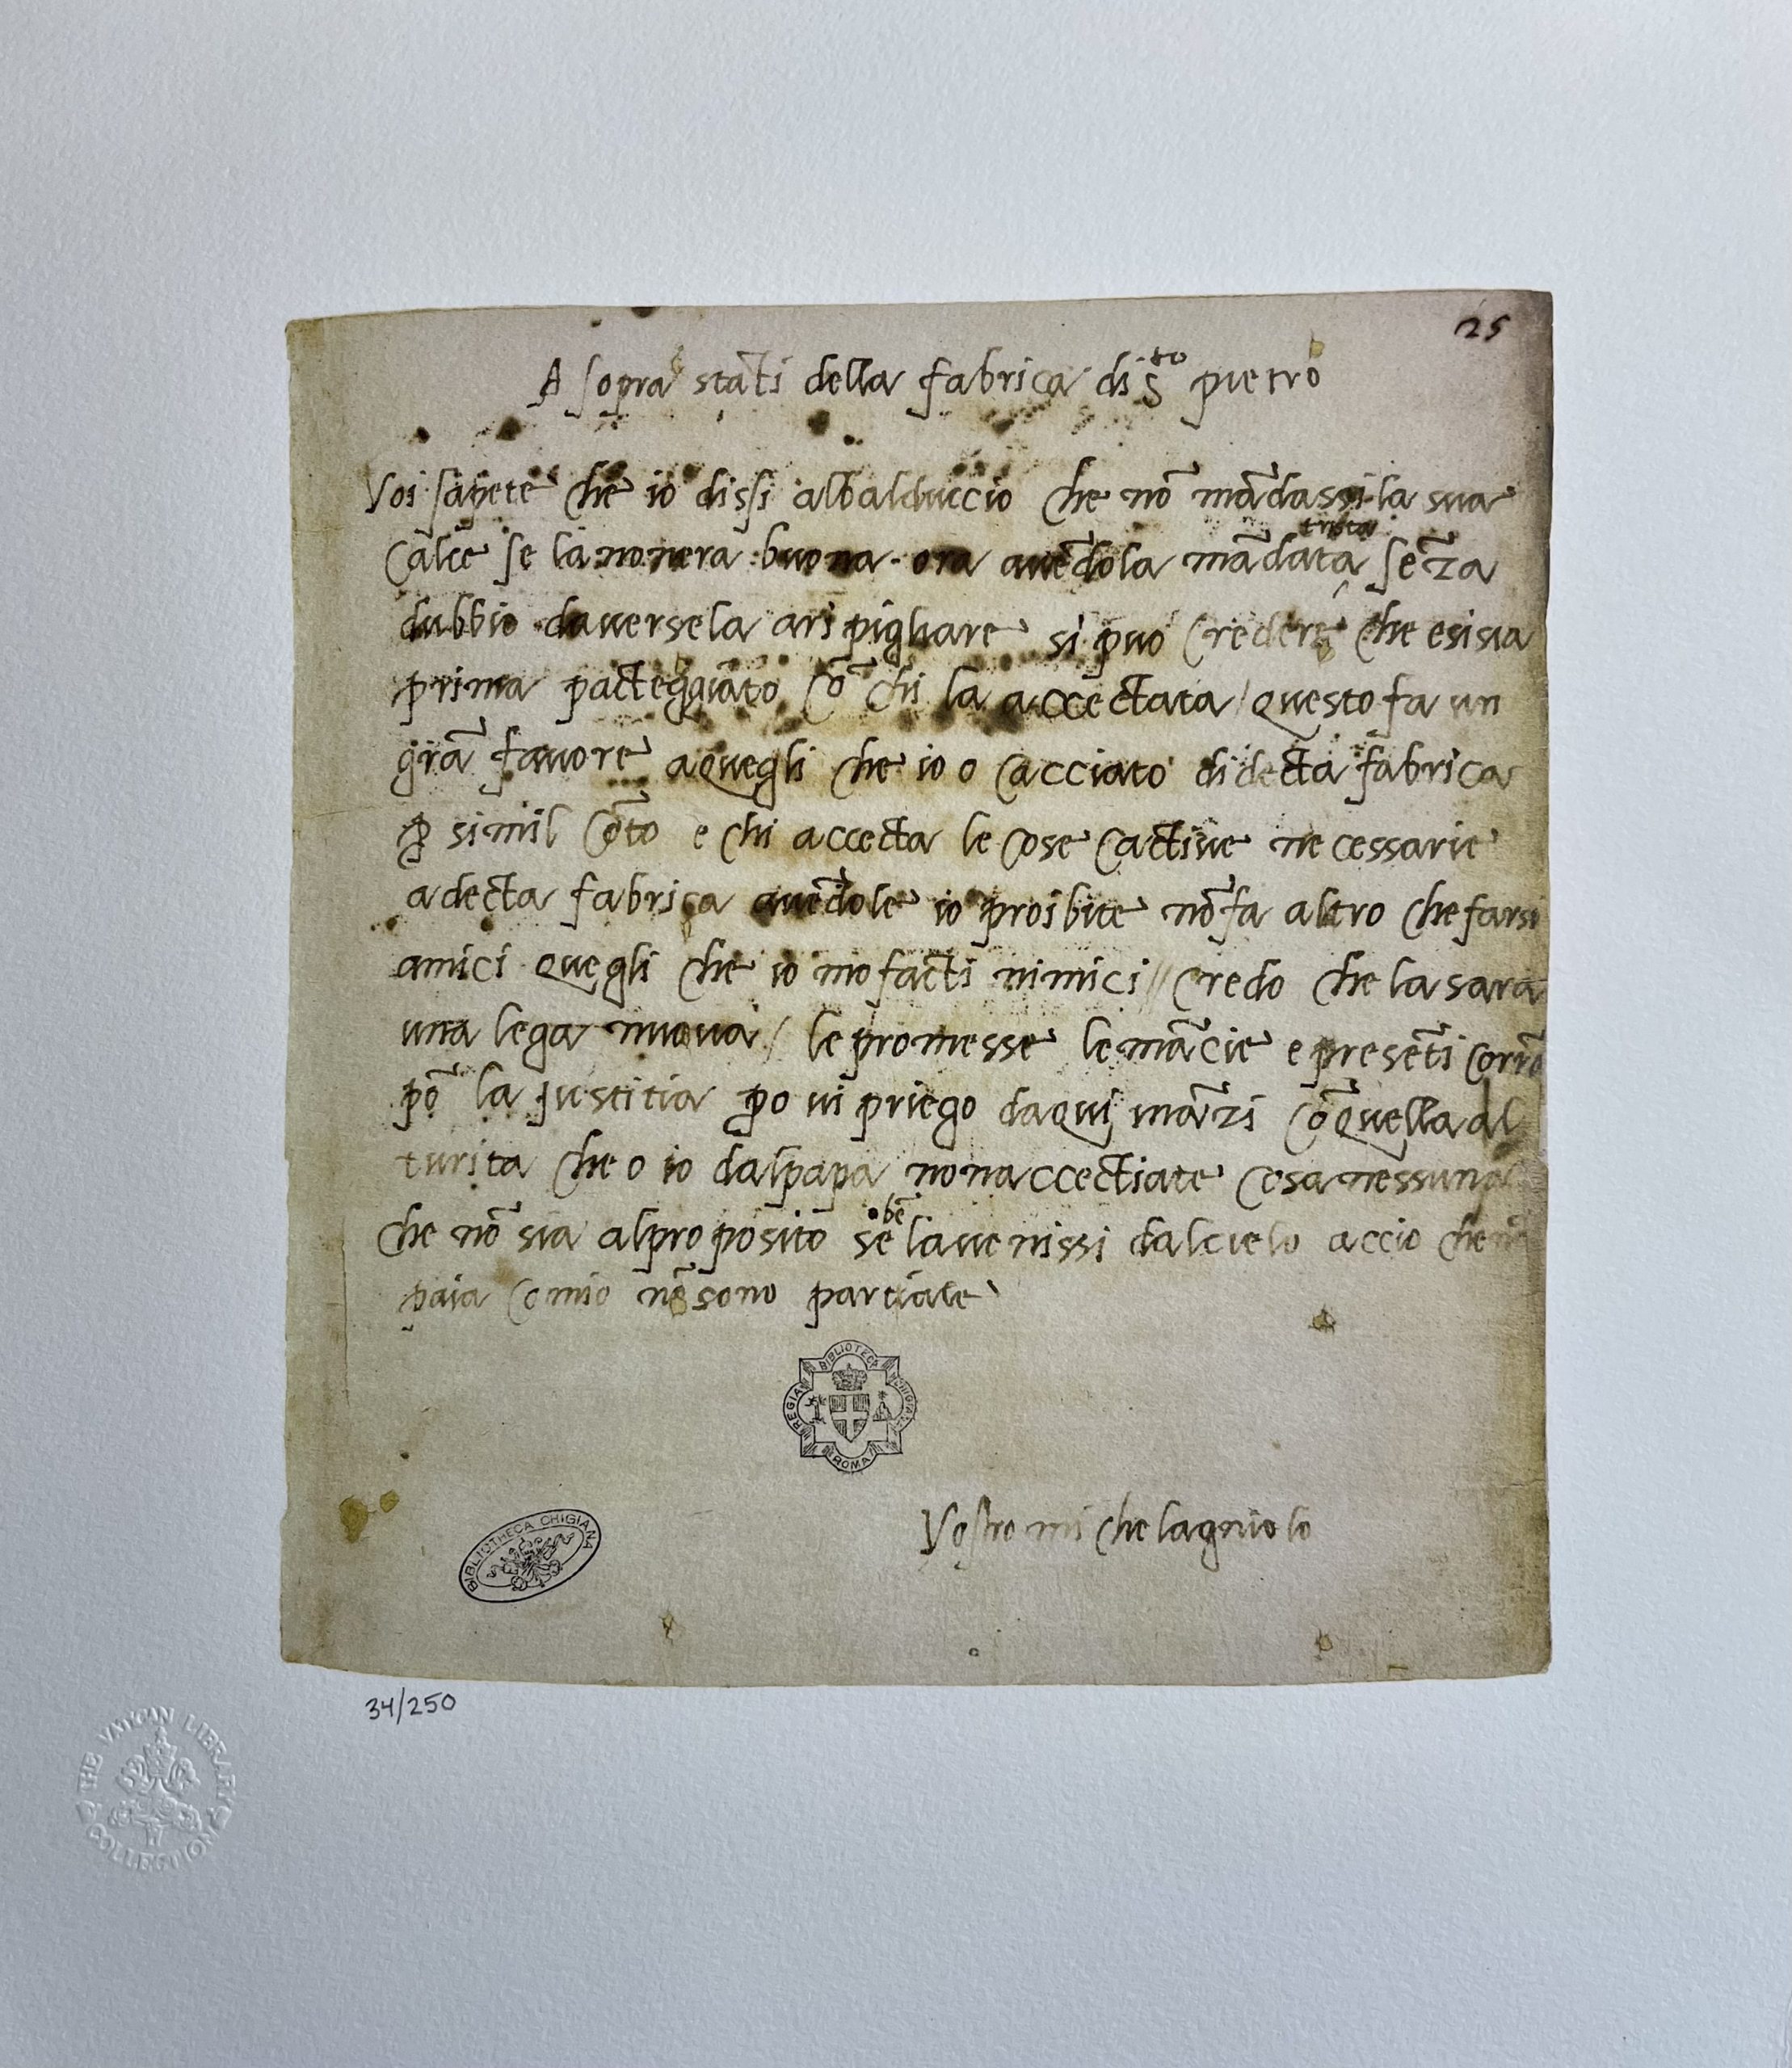 25
A sopra stati della fabrica di S^to pietro
Voi sapete che io dissi albalduccio che nō mādassi la sua
calce se la nonera buona · ora auēdola mādata trista sēza
dubbio dauersela aripigliare si puo credere che esisia
prima pacteggiato cō chi la accectata / questo fa un
grā fauore aquegli che io o cacciato didecta fabrica
ꝑ simil cōto e chi accecta le cose cactiue necessarie
adecta fabrica auēdole io proibite nōfa altro chefarsi
amici quegli che io mo facti nimici // credo che la sara
una lega nuova / le promesse le mācie e presēti corrō
pō la justitia ꝑo vi priego daqui ināzi cōquella al
turita che o io dalpapa nonaccectiate cosanessuna
che nō sia alproposito se bē lauenissi dalcielo accio che
paia comio nōsono partiale
REGIA BIBLIOTECA CHIGIANA ROMA
BIBLIOTHECA CHIGIANA
Vostro michelagniolo
34/250
THE VATICAN LIBRARY COLLECTION